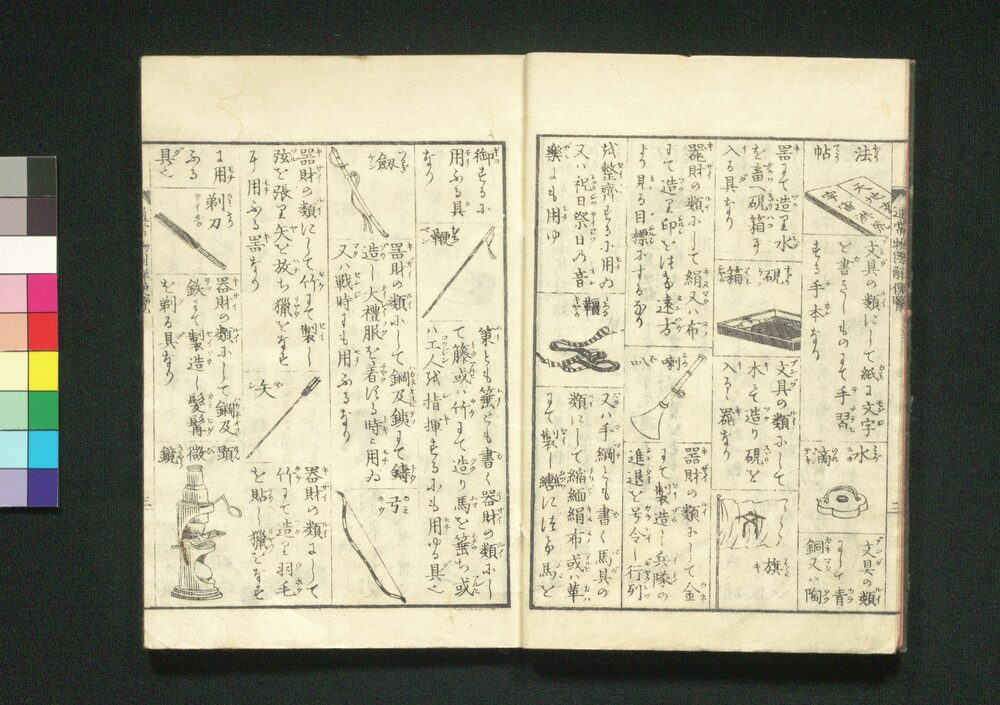 法帖
文具の類にして紙に文字
を書きしものにて手習
する手本なり
水滴
文具の類
にして青
銅又ハ陶
器にて造り水
を畜へ硯箱に
入る具なり
硯箱
文具の類にして
木にて造り硯を
入る器なり
旗
器財の類にして絹又ハ布
にて造り印をつける遠方
より見る目標にするなり
喇叭
器財の類にして金
にて製造し兵隊の
進退を号令し行列
を整齊するに用ゐ
又ハ祝日祭日の音
樂にも用ゆ
韁
又ハ手綱とも書く馬具の
類にして縮緬絹布或ハ革
にて製し轡につけ馬を
御するに
用ふる具
なり
鞭
策とも箠とも書く器財の類にし
て籐或ハ竹にて造り馬を箠ち或
ハ工人を指揮するにも用ゆる具也
劔
器財の類にして鋼及鐵にて鋳
造し大禮服を着する時に用ゐ
又ハ戦時にも用ふるなり
弓
器財の類にして竹にて製し
弦を張り矢を放ち獵をなす
に用ふる器なり
矢
器財の類にして
竹にて造り羽毛
を貼し獵をなす
に用
ふる
具也
剃刀
器財の類にして鋼及
鉄にて製造し髪髯
を剃る具なり
顕微鏡